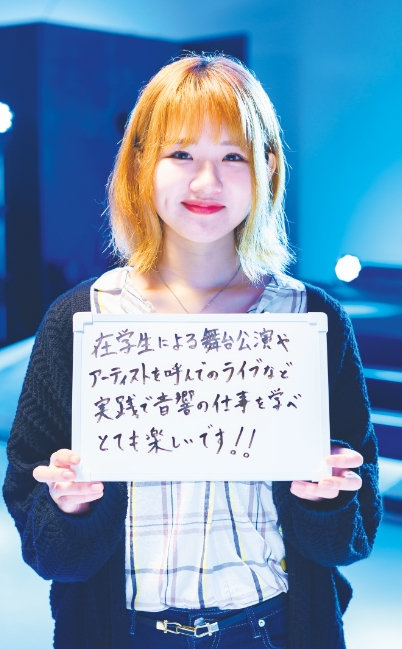 在学生による舞台公演や
アーティストを呼んでのライブなど
実践で音響の仕事を学べ
とても楽しいです!!